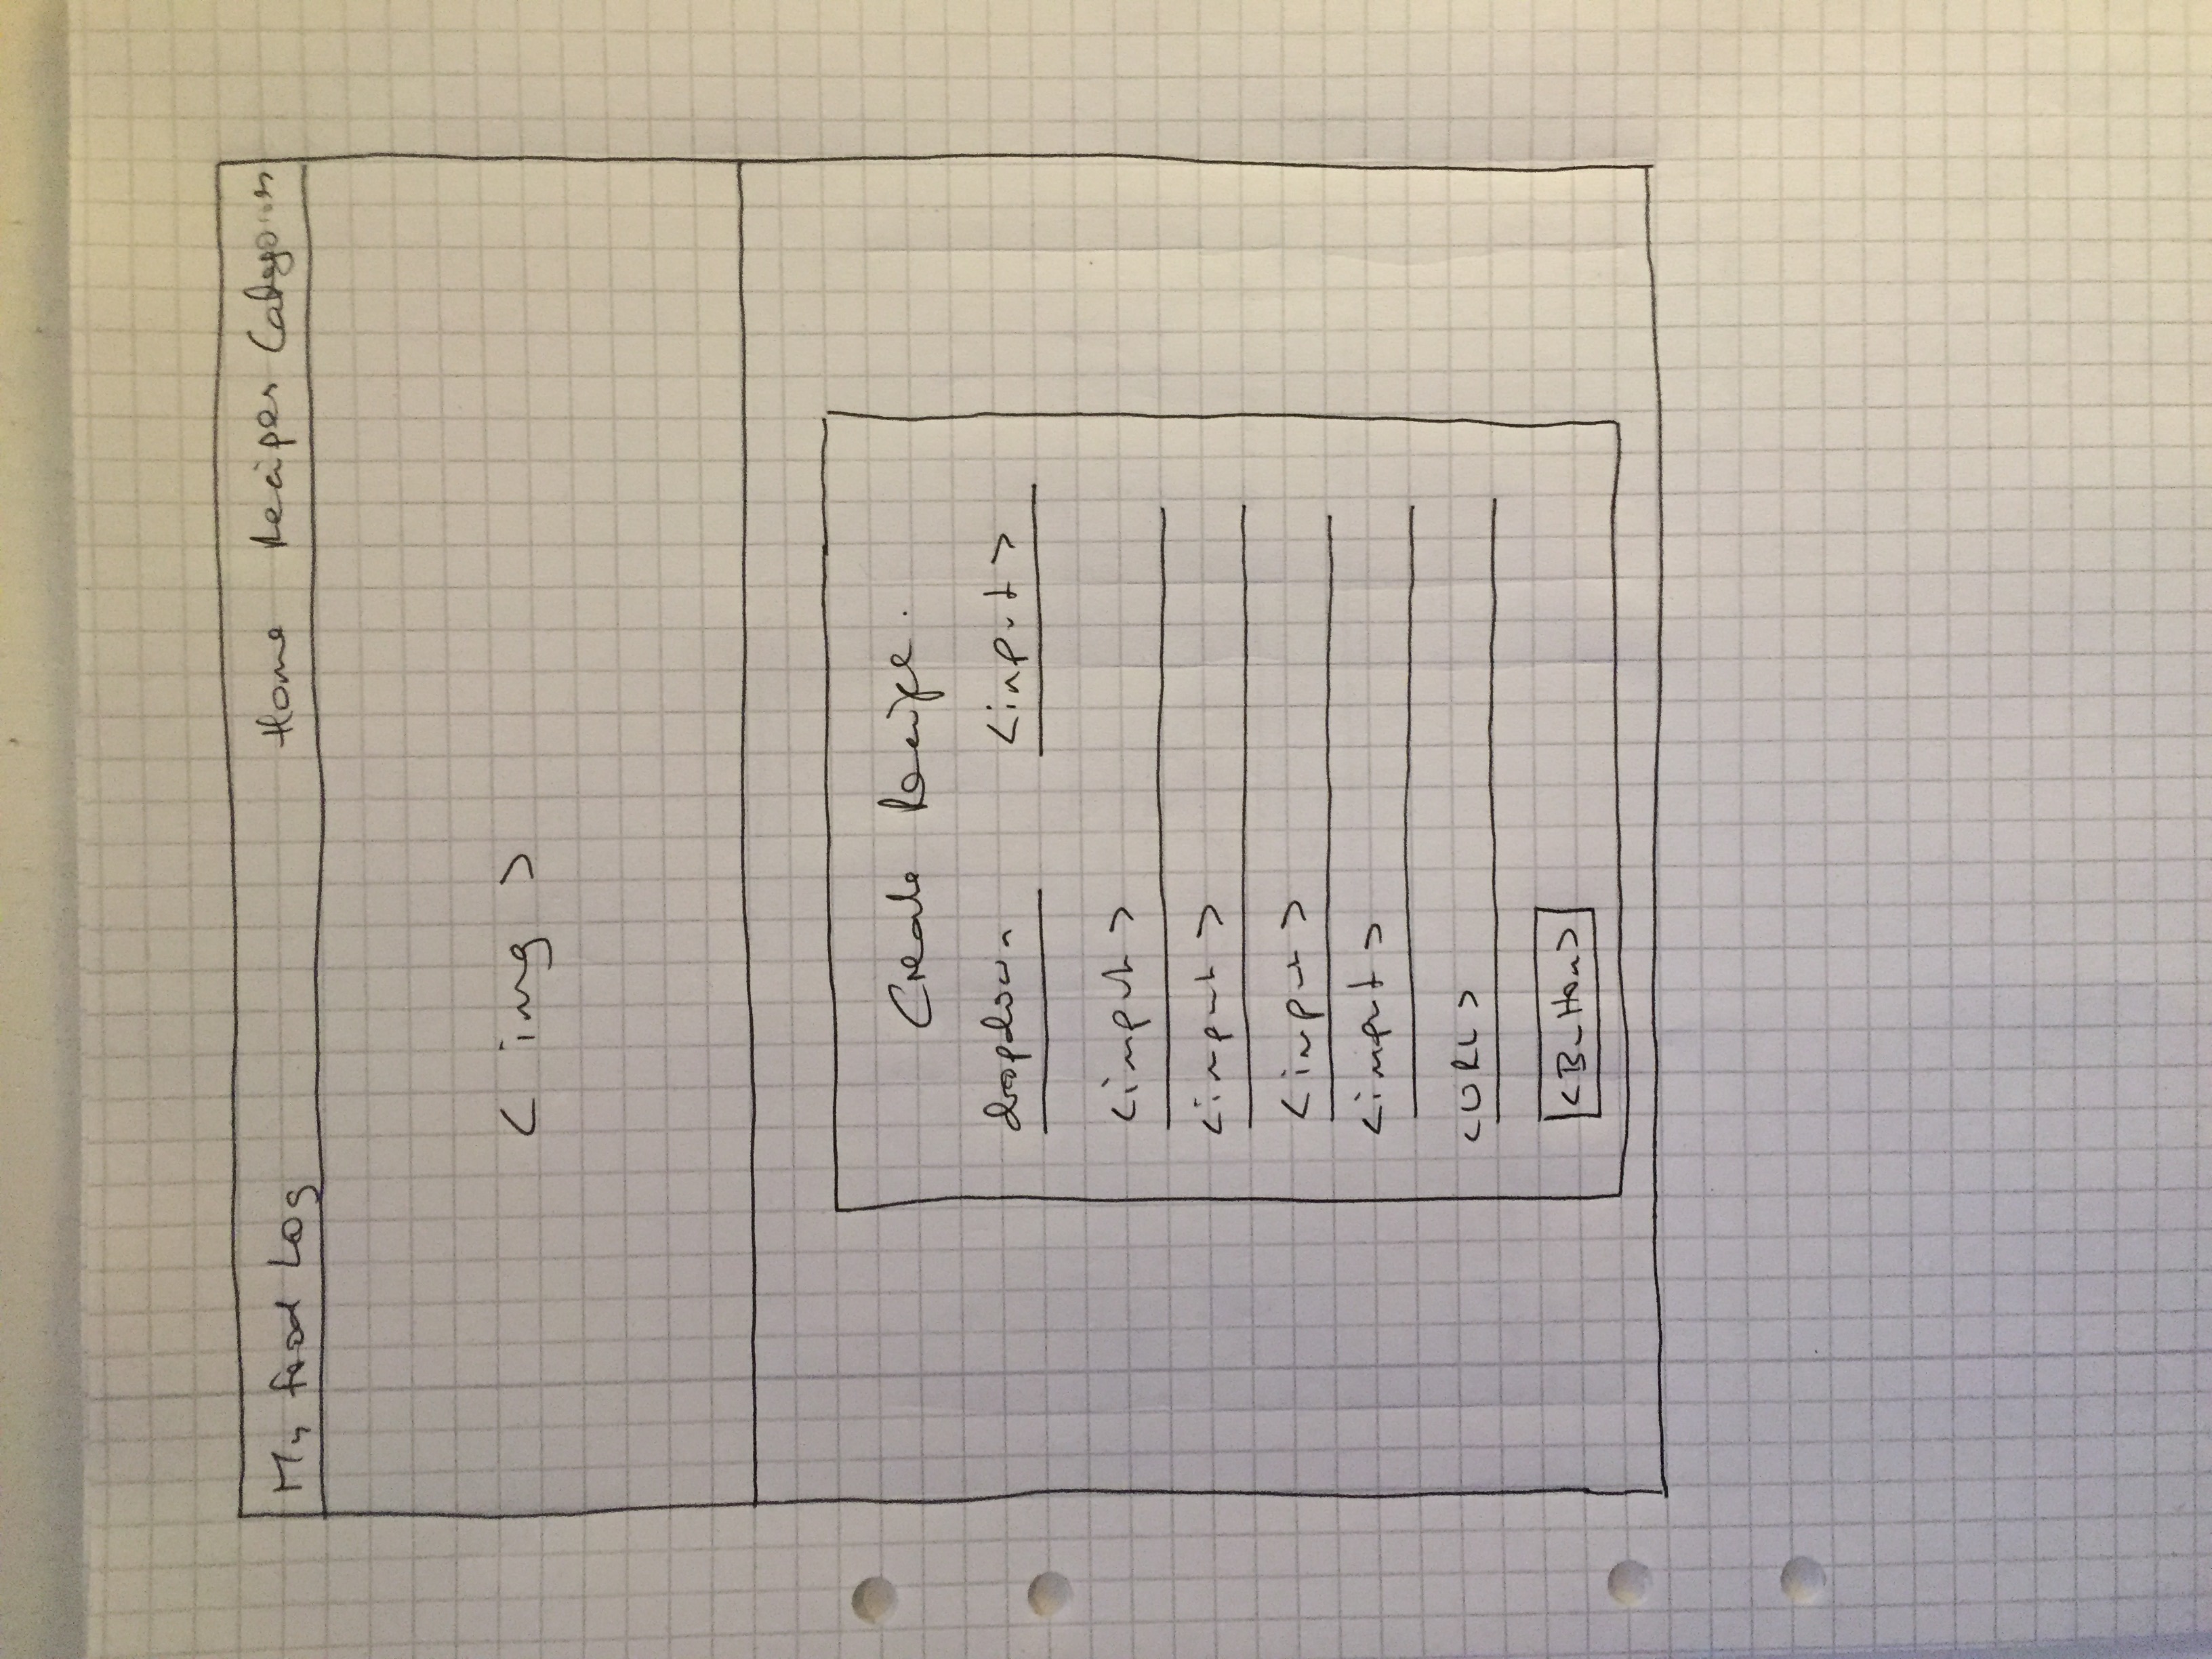 My Food Log Home Recipes Categories
< img >
Create Recipe.
dropdown <input>
<input>
<input>
<input>
<input>
<URL>
<Button>